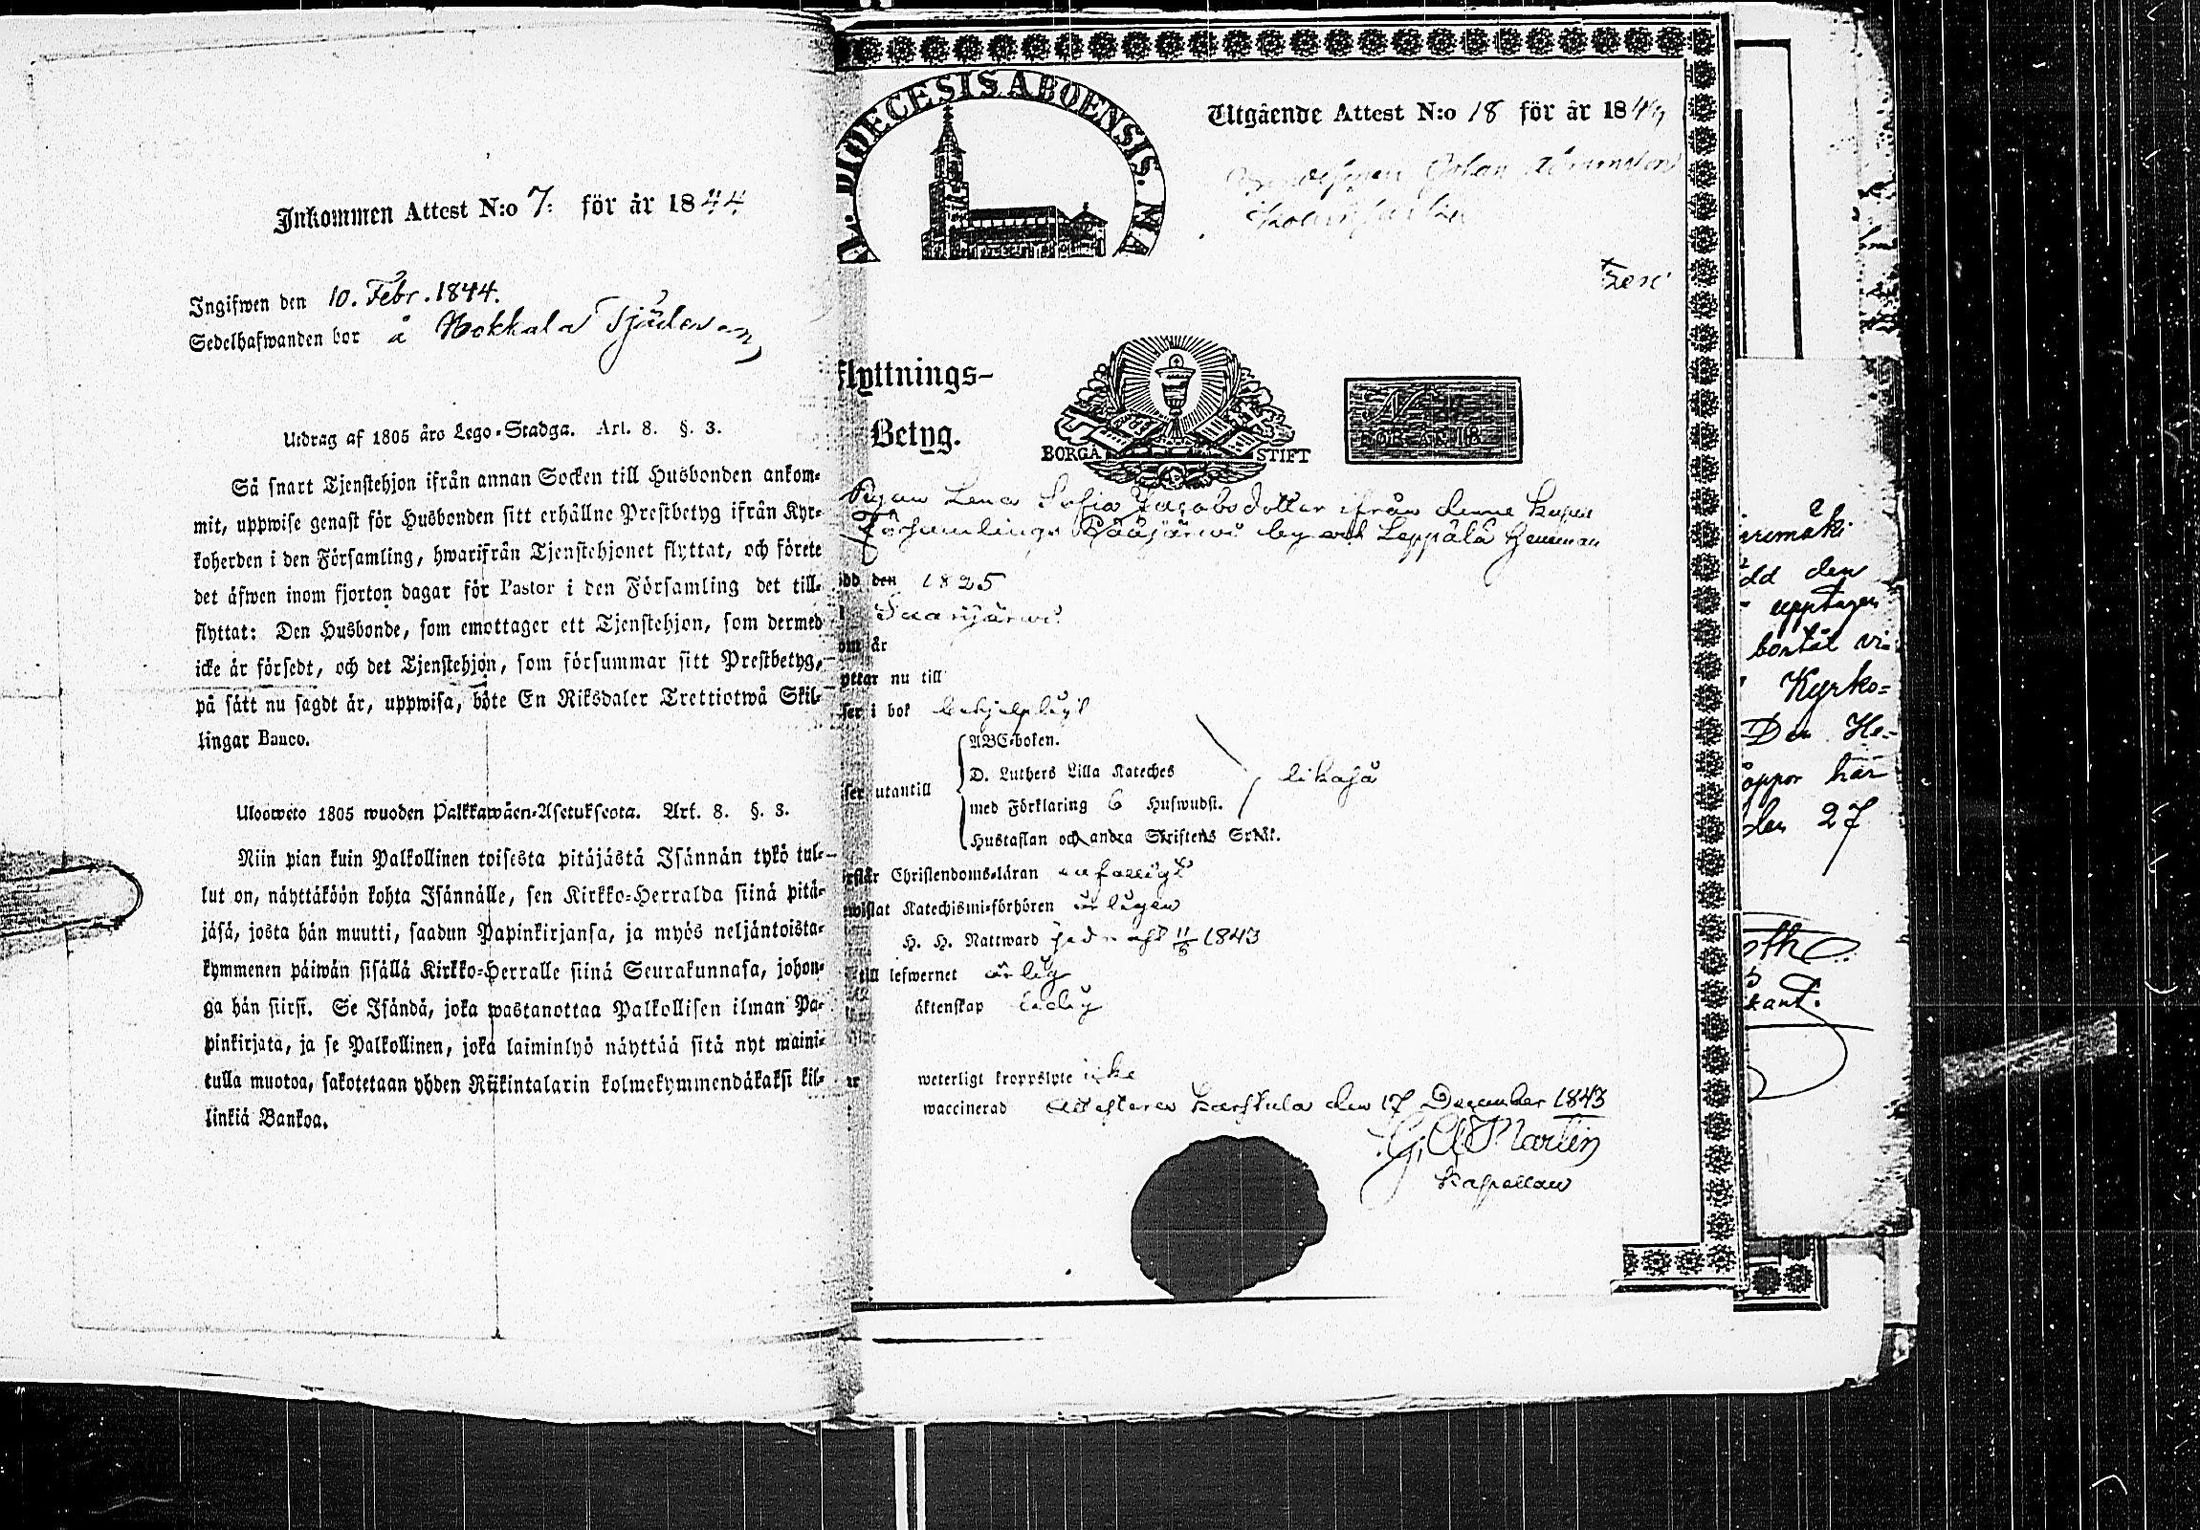 Inkommen Attest N:o 7. för år 1844
Ingifwen den 10. Febr. 1844.
Sedelhafwanden bor å Hokkala
Utdrag af 1805 års Lego-Stadga. Art. 8. §. 3.
Så snart Tjenstehjon ifrån annan Socken till Husbonden ankom-
mit, uppwise genast för Husbonden sitt erhållne Prestbetyg ifrån Kyr-
koherden i den Församling, hwarifrån Tjenstehjonet flyttat, och förete
det äfwen inom fjorton dagar för Pastor i den Församling det till-
flyttat: Den Husbonde, som emottager ett Tjenstehjon, som dermed
icke är försedt, och det Tjenstehjon, som försummar sitt Prestbetyg,
på sätt nu sagdt är, uppwisa, böte En Riksdaler Trettiotwå Skil-
lingar Banco.
Ulosweto 1805 wuoden Palkkawäen-Asetuksesta. Art. 8. §. 3.
Niin pian kuin Palkollinen toisesta pitäjästä Isännän tykö tul-
lut on, näyttäköön kohta Isännälle, sen Kirkko-Herralda siinä pitä-
jäsä, josta hän muutti, saadun Papinkirjansa, ja myös neljäntoista-
kymmenen päiwän sisällä Kirkko-Herralle siinä Seurakunnasa, johon-
ga hän siirsi. Se Isändä, joka wastanottaa Palkollisen ilman Pa-
pinkirjata, ja se Palkollinen, joka laiminlyö näyttää sitä nyt maini-
tulla muotoa, sakotetaan yhden Riikintalarin kolmekymmendäkaksi kil-
linkiä Bankoa.
DIOECESIS ABOENSIS. MA
Utgående Attest N:o 18 för år 184
Flyttnings-
Betyg.
BORGÅ STIFT
FÖR ÅR 18
Pigan Lena Sofia Jacobsdotter ifrån denne
Församlings Pääjärwi by och Leppälä Hemman
ödd den 1825
Saarijärwi
om år
yttar nu till
ser i bok behjelpligt
ABC-boken.
D. Luthers Lilla Kateches
ser utantill
med Förklaring 6 Hufwudst. likaså
Hustaflan och andra Skriftens Språk.
rstår Christendoms-läran enfaldigt
wistat Katechismi-förhören årligen
H. H. Nattward 11/6 1843
till lefwernet ärlig
äktenskap ledig
weterligt kroppslyte icke
waccinerad
attesterar Karstula den 17 December 1843
G. A. Martin
Kapellan
dd den
upptagen
Kyrko-
Den He-
här
den 27